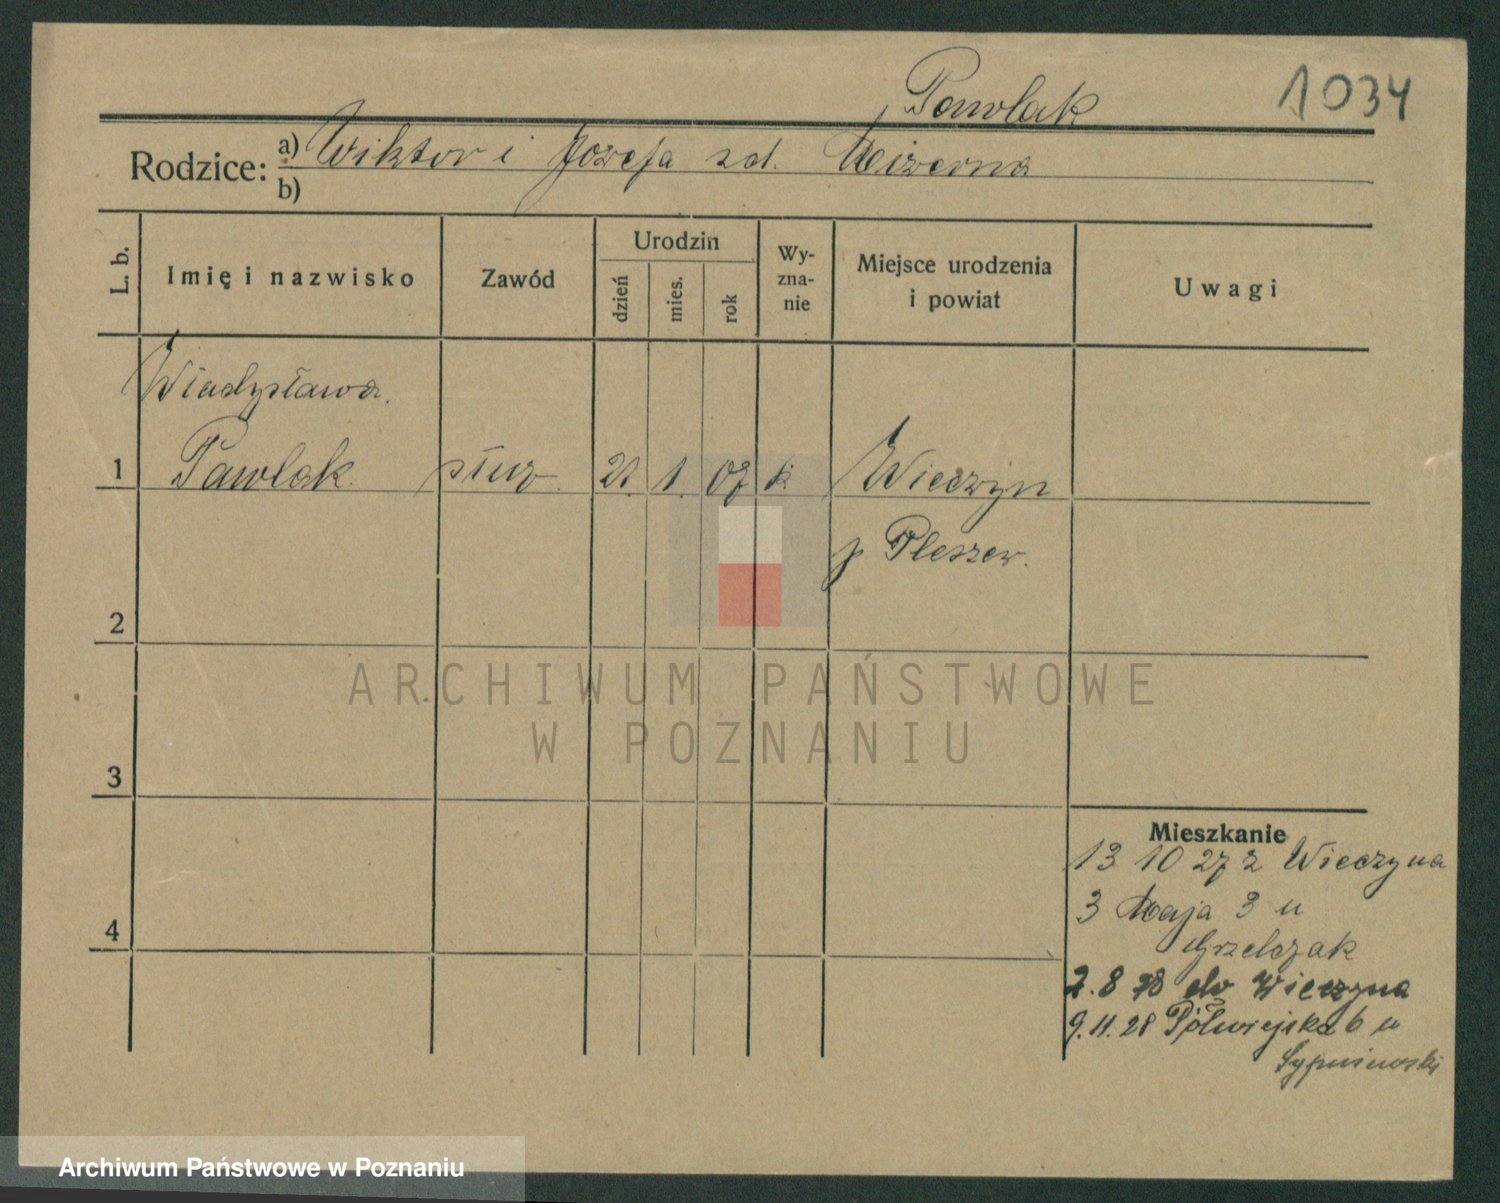 Pawlak
1034
Rodzice: a) Wiktor i Józefa zd. Mizerna
b)
L. b.
Imię i nazwisko
Zawód
Urodzin
dzień
mies.
rok
Wy-
zna-
nie
Miejsce urodzenia
i powiat
Uwagi
Władysława
1 Pawlak służ. 21. 1. 07 k Wieczyn
p Pleszew.
2
3
4
ARCHIWUM PAŃSTWOWE
W POZNANIU
Mieszkanie
13 10 27 z Wieczyna
3 Maja 3 u
Grzelczak
2.8 28 do Wieczyna
9.11.28 Półwiejska 6 u
Sypniewski
Archiwum Państwowe w Poznaniu